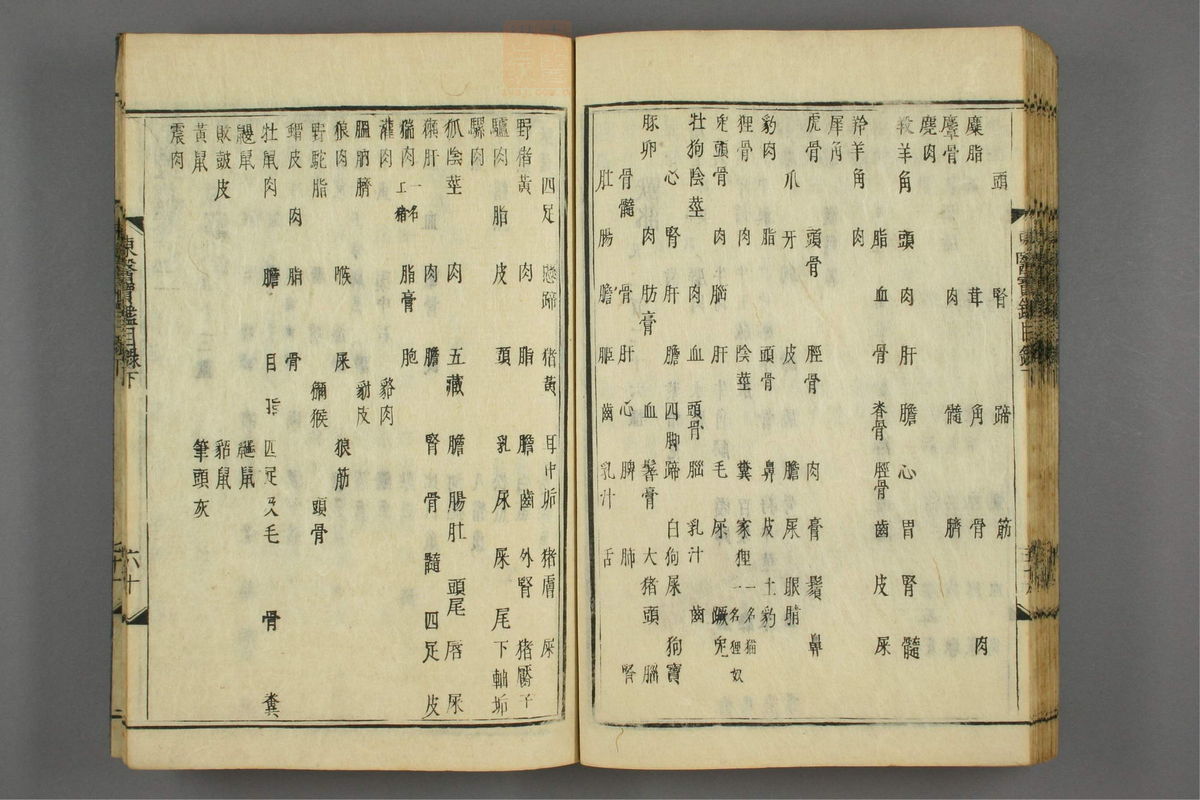 頭 腎 蹄 筋
麋脂 茸 角 骨 肉
麞骨 肉 髓 臍
麂肉
羖羊角 頭 肉 肝 膽 心 胃 腎 髓
脂 血 骨 脊骨 脛骨 齒 皮 屎
羚羊角 肉
犀角
虎骨 頭骨 脛骨 肉 膏 鬚 鼻
爪 牙 皮 膽 屎 眼睛
豹肉 脂 頭骨 鼻 皮 土豹
狸骨 肉 陰莖 糞 家狸 一名猫 一名狸奴
兎頭骨 肉 腦 肝 毛 屎
牡狗陰莖 肉 血 頭骨 腦 乳汁 齒
心 腎 肝 膽 四脚蹄 白狗屎 狗寶
豚卵 肉 肪膏 血 䰇膏 大猪頭 腦
骨髓 骨 肝 心 脾 肺 腎
肚 腸 膽 齒 乳汁 舌
四足 懸蹄 猪黃 耳中垢 猪膚 屎
野猪黃 肉 脂 膽 齒 外腎
驢肉 脂 皮 頭 乳 尿 屎 尾下軸垢
騾肉
狐陰莖 肉 五藏 膽 腸肚 頭尾 唇 屎
獺肝 肉 膽 腎 骨 髓 四足 皮
猯肉 一名 猪 脂膏 胞
獾肉 豺皮
膃肭臍
狼肉 喉 屎 狼筋
野駝脂 獼猴 頭骨
蝟皮 肉 脂 骨
牡鼠肉 膽 目 脂 四足及毛 骨 糞
鼴鼠
敗鼓皮 鼠
黃鼠 筆頭灰
震肉
東醫寶鑑目錄下 六十